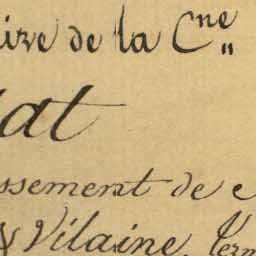 ire de la Cne
at
ssement de
Vilaine,